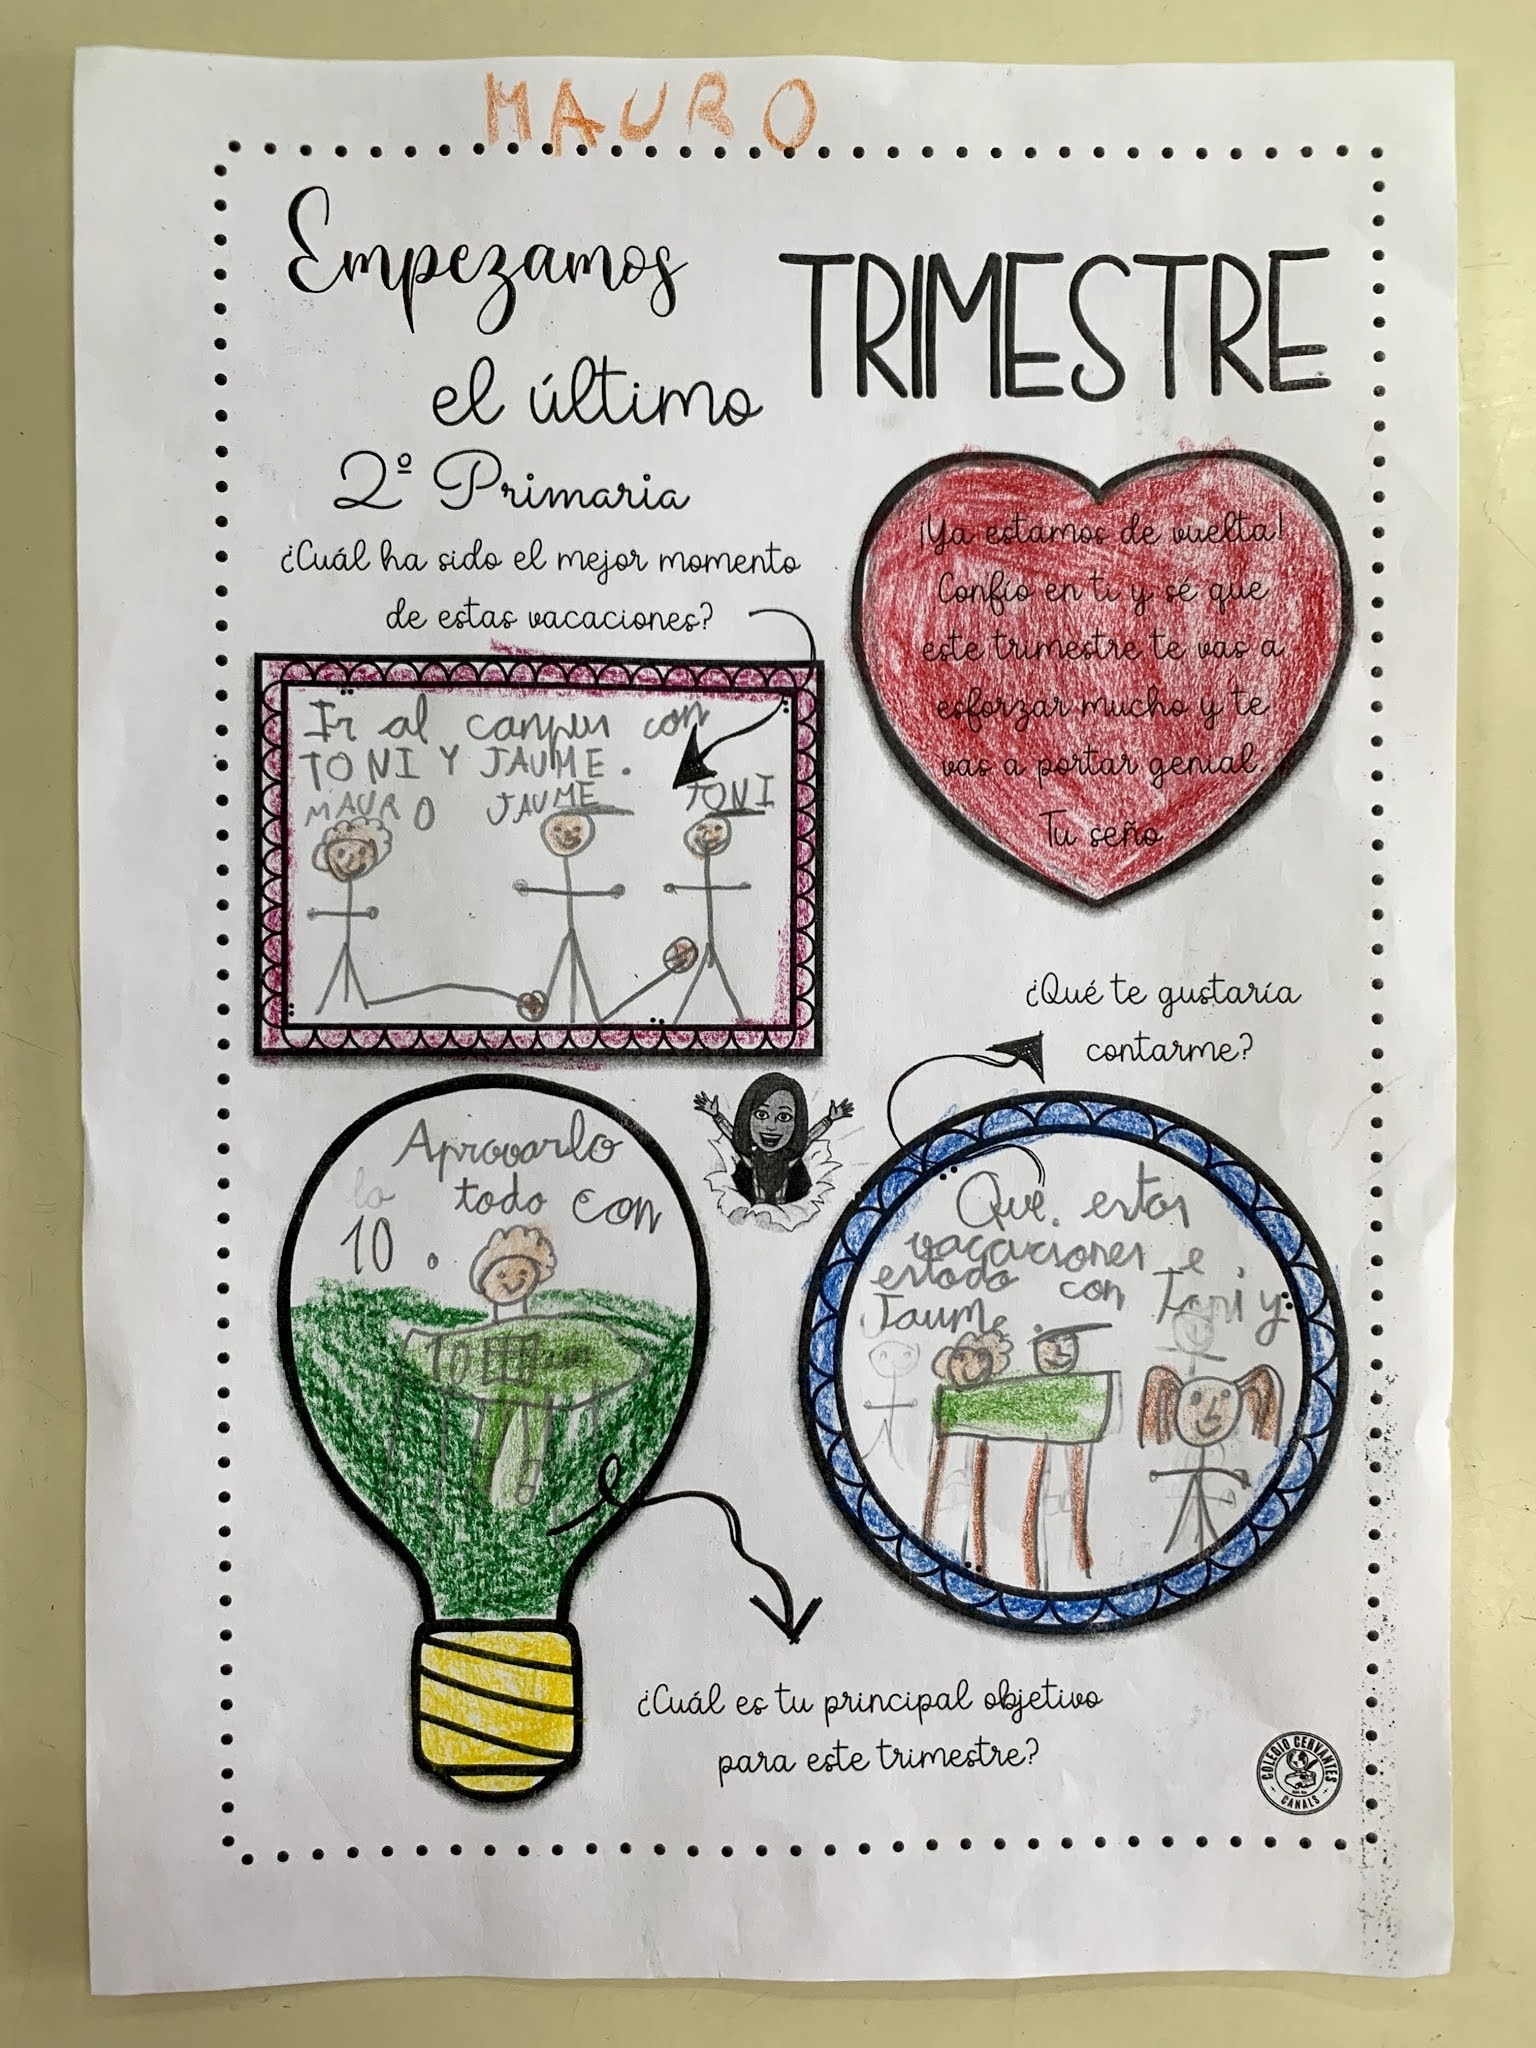 MAURO
Empezamos
el último
TRIMESTRE
2º Primaria
¿Cuál ha sido el mejor momento
de estas vacaciones?
Ir al campus con
TONI Y JAUME.
MAURO JAUME TONI
¡Ya estamos de vuelta!
Confío en ti y sé que
este trimestre te vas a
esforzar mucho y te
vas a portar genial.
Tu seño
¿Qué te gustaría
contarme?
Aprovarlo
todo con
10.
10
Que estas
vacaciones e
estado con Toni y
Jaume.
¿Cuál es tu principal objetivo
para este trimestre?
COLEGIO CERVANTES
CANALS